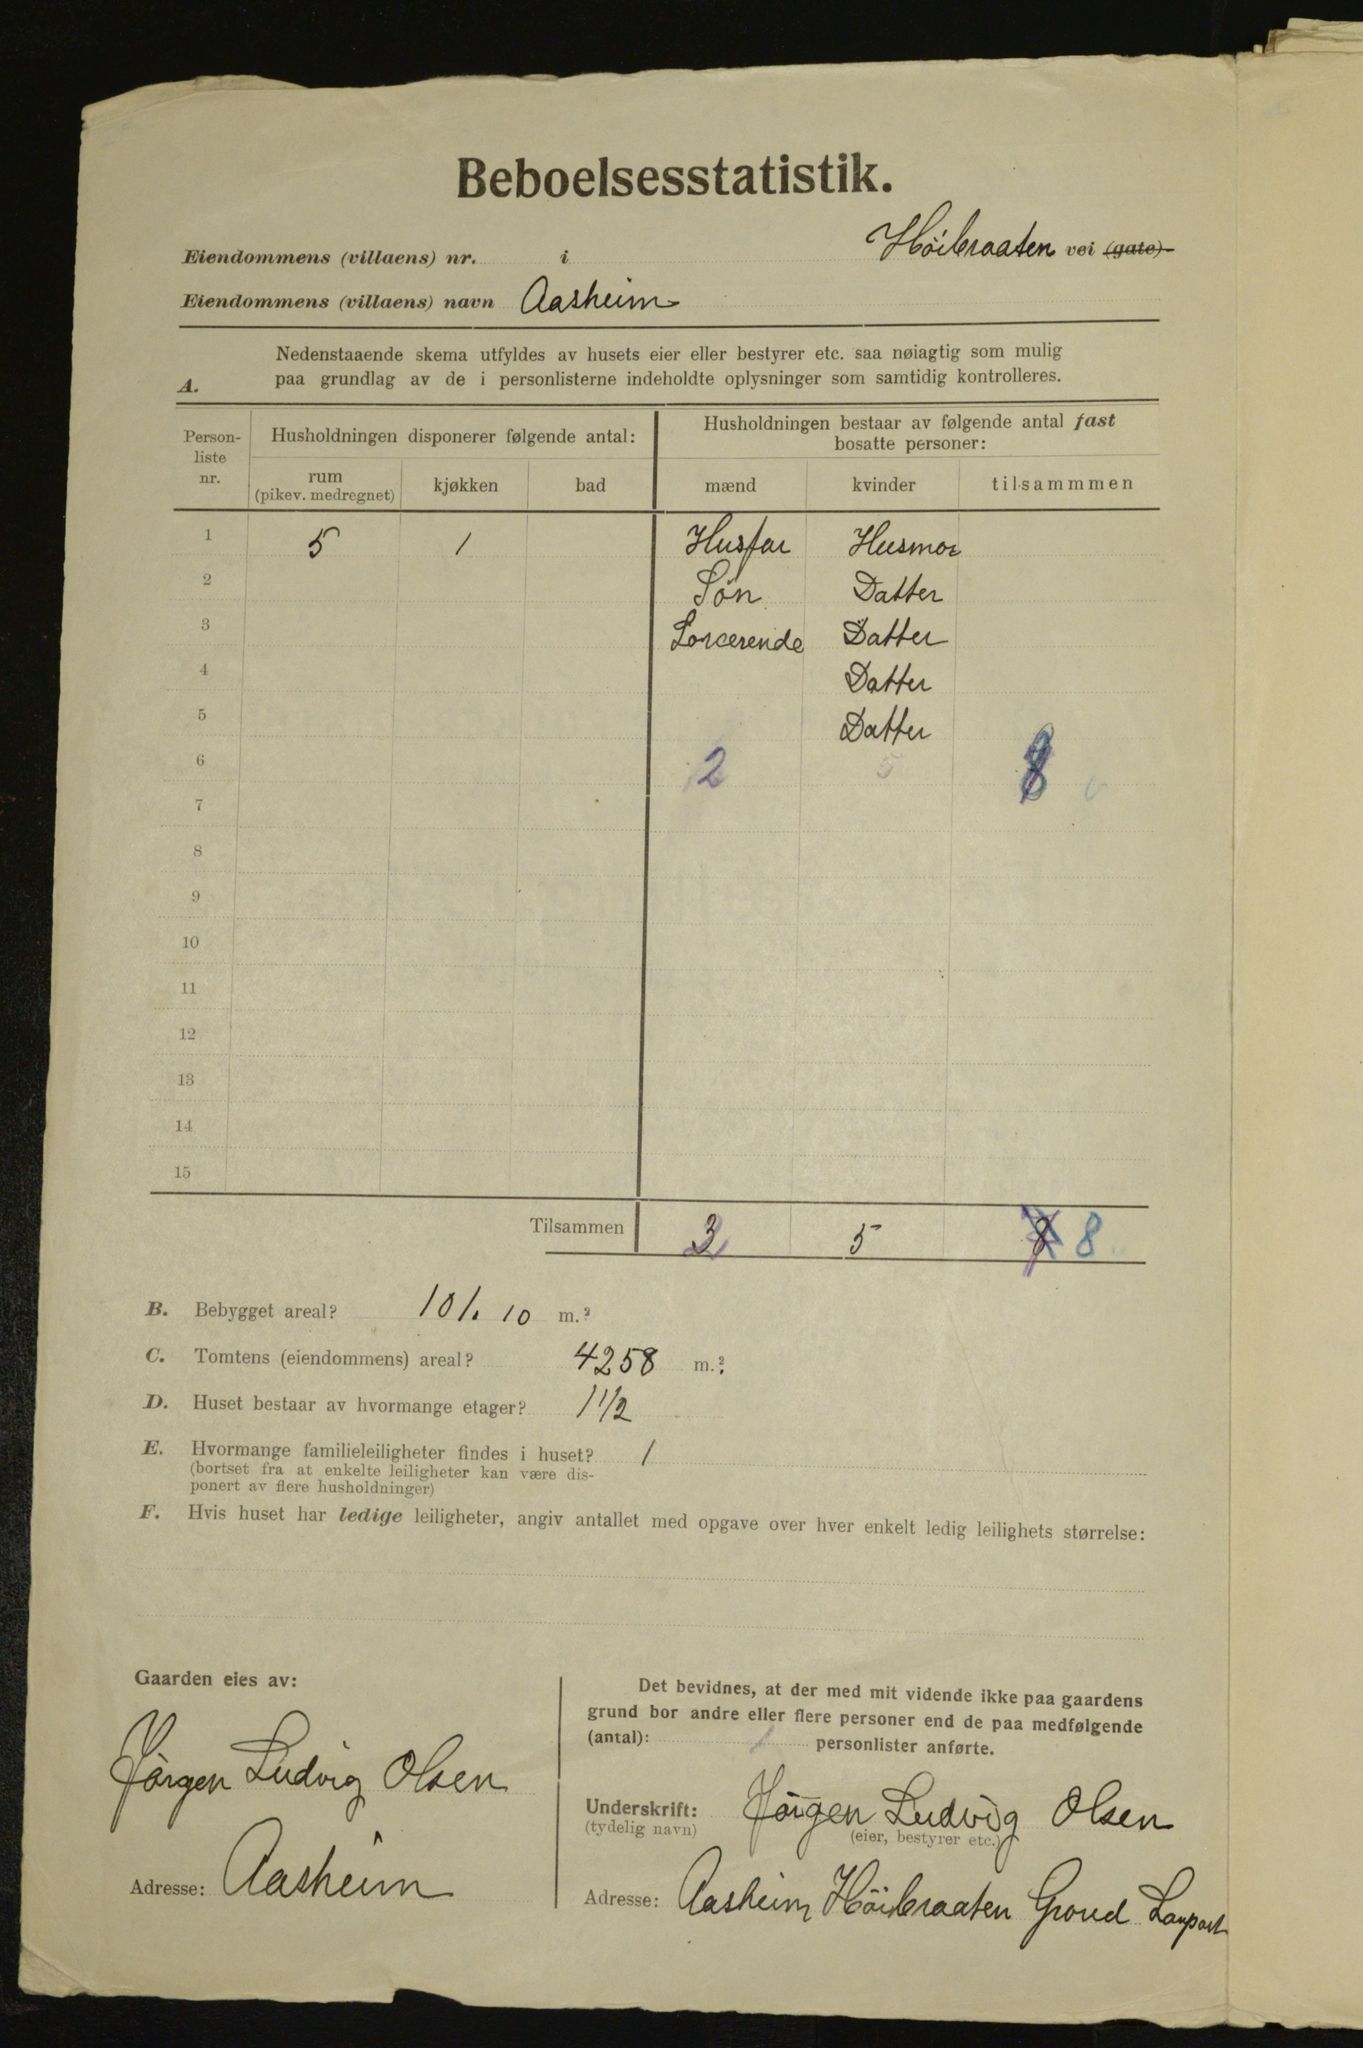 Beboelsesstatistik.
Eiendommens (villaens) nr. i Höibraaten vei (gate)
Eiendommens (villaens) navn Aasheim
Nedenstaaende skema utfyldes av husets eier eller bestyrer etc. saa nøiagtig som mulig
A. paa grundlag av de i personlisterne indeholdte oplysninger som samtidig kontrolleres.
Person-
liste
nr.
Husholdningen disponerer følgende antal:
Husholdningen bestaar av følgende antal fast
bosatte personer:
rum
(pikev. medregnet)
kjøkken bad mænd kvinder tilsammmen
1 5 1 Husfar Husmor
2 Søn Datter
3 Datter
4 Datter
5 Datter
6 2 5 8
7
8
9
10
11
12
13
14
15
Tilsammen 3 5 8 8
B. Bebygget areal? 101.10 m.²
C. Tomtens (eiendommens) areal? 4258 m.²
D. Huset bestaar av hvormange etager? 1 1/2
E. Hvormange familieleiligheter findes i huset? 1
(bortset fra at enkelte leiligheter kan være dis-
ponert av flere husholdninger)
F. Hvis huset har ledige leiligheter, angiv antallet med opgave over hver enkelt ledig leilighets størrelse:
Gaarden eies av:
Jörgen Ludvig Olsen
Adresse: Aasheim
Det bevidnes, at der med mit vidende ikke paa gaardens
grund bor andre eller flere personer end de paa medfølgende
(antal): 1 personlister anførte.
Underskrift: Jörgen Ludvig Olsen
(tydelig navn) (eier, bestyrer etc.)
Adresse: Aasheim Höibraaten Groud